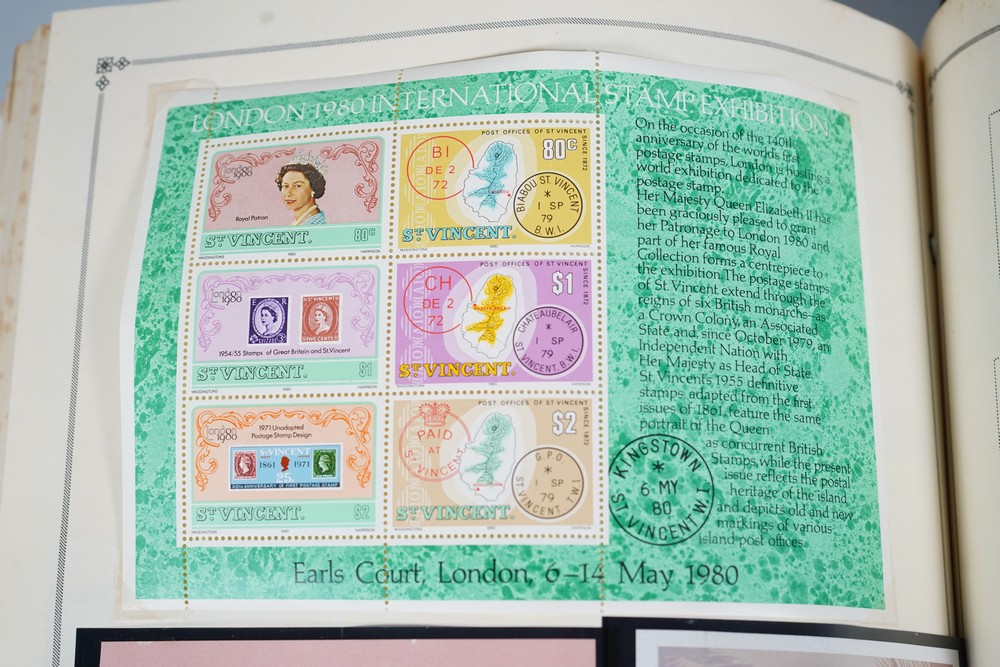 LONDON 1980 INTERNATIONAL STAMP EXHIBITION
london 1980
Royal Patron
ST VINCENT.
80c
WADDINGTONS
1980
HARRISON
POST OFFICES OF ST VINCENT
SINCE 1872
80c
BI
DE 2
72
BIABOU ST. VINCENT
*
1 SP
79
B.W.I.
ST VINCENT.
WADDINGTONS
1980
HARRISON
london 1980
1954/55 Stamps of Great Britain and St.Vincent
ST VINCENT.
$1
WADDINGTONS
1980
HARRISON
POST OFFICES OF ST VINCENT
SINCE 1872
$1
CH
DE 2
72
CHATEAUBELAIR
*
1 SP
79
ST VINCENT. B.W.I.
ST VINCENT.
WADDINGTONS
1980
HARRISON
london 1980
1971 Unadopted
Postage Stamp Design
ST VINCENT
1861 1971
25c
110TH ANNIVERSARY OF FIRST POSTAGE STAMP
ST VINCENT.
$2
WADDINGTONS
1980
HARRISON
POST OFFICES OF ST VINCENT
SINCE 1872
$2
PAID
AT
ST VINCENT
G.P.O.
*
1 SP
79
ST. VINCENT. W.I.
ST VINCENT.
WADDINGTONS
1980
HARRISON
On the occasion of the 140th
anniversary of the worlds first
postage stamps, London is hosting a
world exhibition dedicated to the
postage stamp.
Her Majesty Queen Elizabeth II has
been graciously pleased to grant
her Patronage to London 1980 and
part of her famous Royal
Collection forms a centrepiece to
the exhibition. The postage stamps
of St. Vincent extend through the
reigns of six British monarchs—as
a Crown Colony, an Associated
State and, since October 1979, an
Independent Nation with
Her Majesty as Head of State.
St. Vincents 1955 definitive
stamps, adapted from the first
issues of 1861, feature the same
portrait of the Queen
as concurrent British
Stamps, while the present
issue reflects the postal
heritage of the island
and depicts old and new
markings of various
island post offices.
KINGSTOWN
*
6-MY
80
ST. VINCENT W.I.
Earls Court, London, 6–14 May 1980